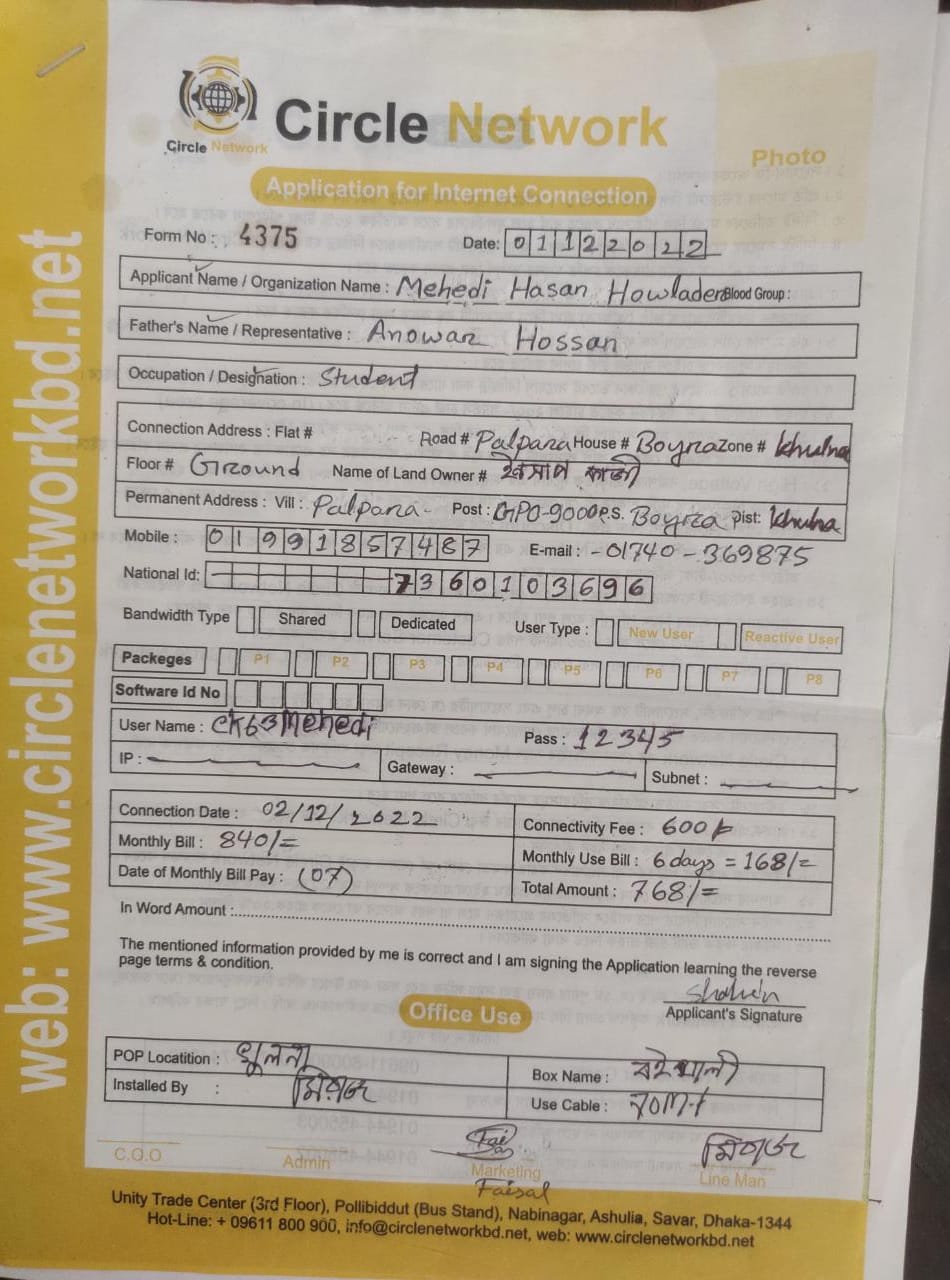 Circle Network
Circle Network
Photo
Application for Internet Connection
Form No : 4375
Date: 01122022
Applicant Name / Organization Name : Mehedi Hasan Howlader Blood Group :
Father's Name / Representative : Anowar Hossan
Occupation / Designation : Student
Connection Address : Flat # Road # Palpara House # Boyra Zone # Khulna
Floor # Ground Name of Land Owner #
Permanent Address : Vill : Palpara Post : GPO-9000 P.S. Boyra Dist: Khulna
Mobile : 01991857487 E-mail : -01740-369875
National Id: 7360103696
Bandwidth Type Shared Dedicated User Type : New User Reactive User
Packeges P1 P2 P3 P4 P5 P6 P7 P8
Software Id No
User Name : Mehedi Pass : 12345
IP : Gateway : Subnet :
Connection Date : 02/12/2022 Connectivity Fee : 600/-
Monthly Bill : 840/= Monthly Use Bill : 6 days = 168/=
Date of Monthly Bill Pay : (07) Total Amount : 768/=
In Word Amount :
The mentioned information provided by me is correct and I am signing the Application learning the reverse
page terms & condition.
Shahin
Applicant's Signature
Office Use
POP Locatition : খুলনা Box Name :
Installed By : মিরাজ Use Cable :
C.O.O Admin Marketing Line Man
Faisal মিরাজ
Unity Trade Center (3rd Floor), Pollibiddut (Bus Stand), Nabinagar, Ashulia, Savar, Dhaka-1344
Hot-Line: + 09611 800 900, info@circlenetworkbd.net, web: www.circlenetworkbd.net
web: www.circlenetworkbd.net